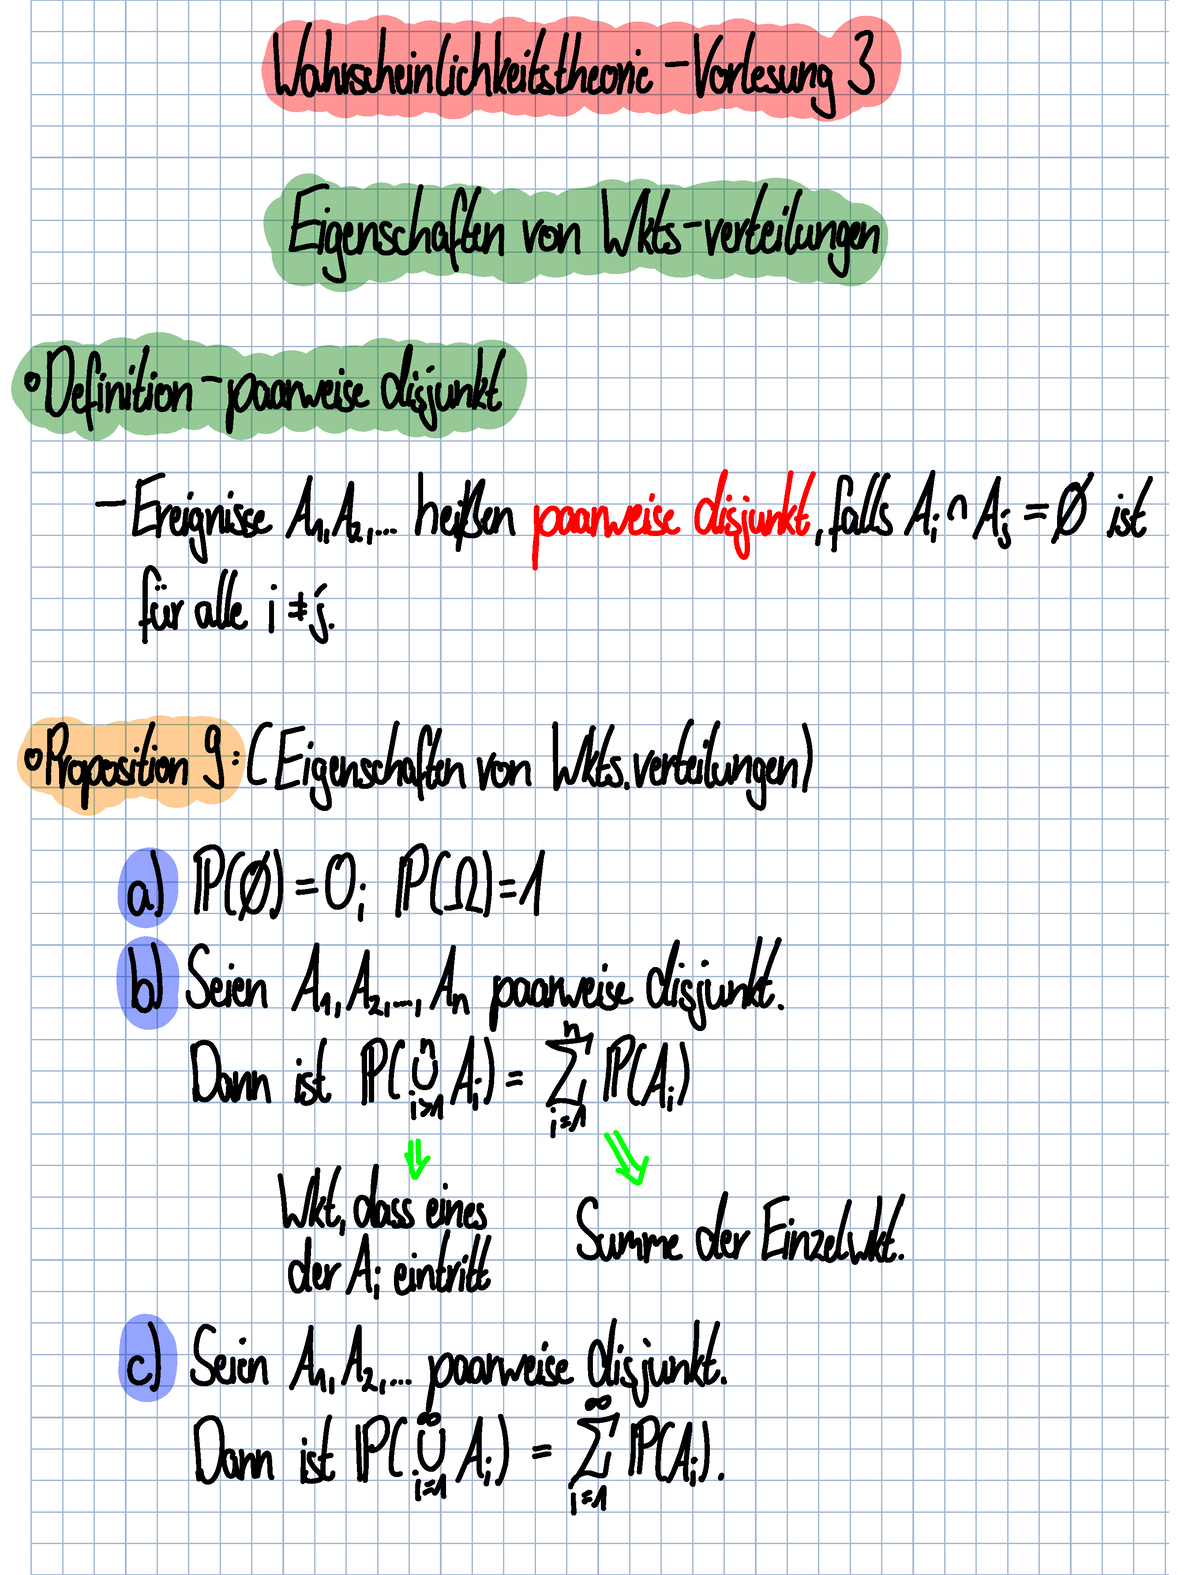 Wahrscheinlichkeitstheorie - Vorlesung 3
Eigenschaften von Wkts-verteilungen
• Definition - paarweise disjunkt
- Ereignisse A₁, A₂,... heißen paarweise disjunkt, falls Aᵢ ∩ Aⱼ = ∅ ist
für alle i ≠ j.
• Proposition 9: (Eigenschaften von Wkts.verteilungen)
a) ℙ(∅) = 0; ℙ(Ω) = 1
b) Seien A₁, A₂,..., Aₙ paarweise disjunkt.
Dann ist ℙ(⋃_{i>1}^{n} Aᵢ) = ∑_{i=1}^{n} ℙ(Aᵢ)
⇓ ⇘
Wkt, dass eines
der Aᵢ eintritt
Summe der Einzelwkt.
c) Seien A₁, A₂,... paarweise disjunkt.
Dann ist ℙ(⋃_{i=1}^{∞} Aᵢ) = ∑_{i=1}^{∞} ℙ(Aᵢ).